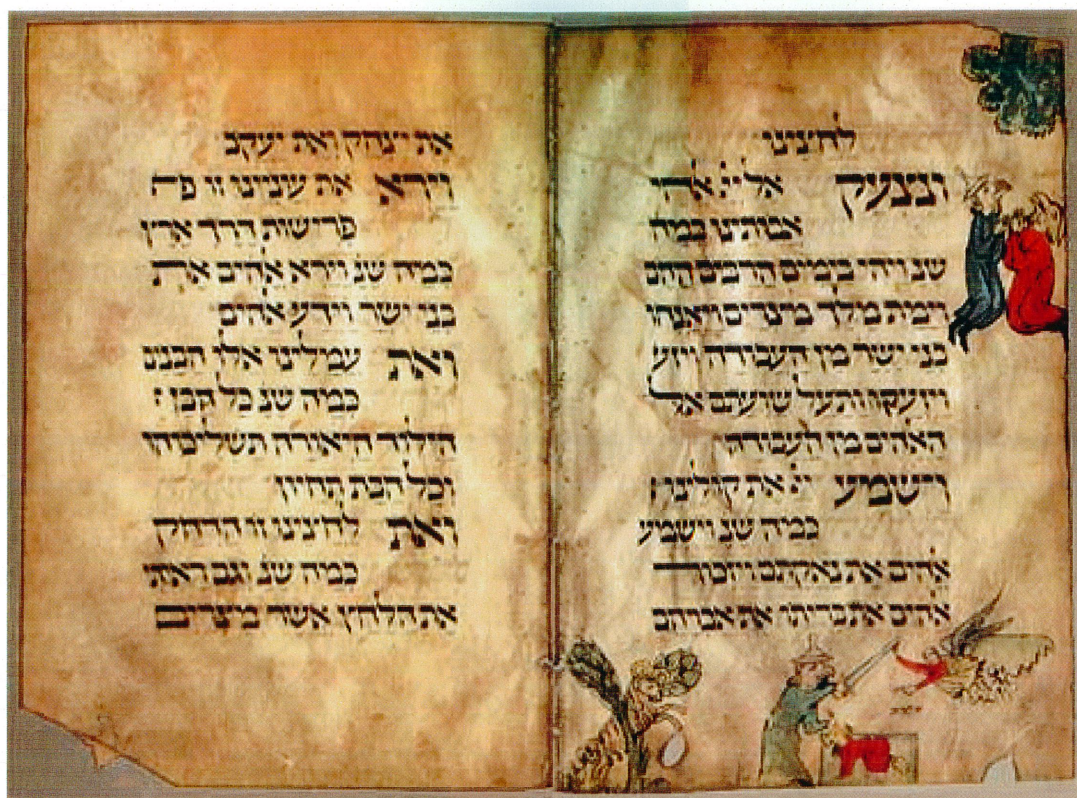 לחצינו
ונצעק אל יי אלהי
אבותינו כמה
שנ ויהי בימים הרבים ההם
וימת מלך מצרים ויאנחו
בני ישר מן העבודה ויזע
ויזעקו ותעל שועתם אל
האלהים מן העבודה
וישמע יי את קולינו
כמה שנ וישמע
אלהים את נאקתם ויזכור
אלהים את בריתו את אברהם
את יצחק ואת יעקב
וירא את עינינו זו פר
פרישות הדרך ארץ
כמה שנ וירא אלהים את
בני ישר וידע אלהים
ואת עמלינו אלו הבנים
כמה שנ כל הבן
הילוד היאורה תשליכוהו
וכל הבת תחיון
ואת לחצינו זו הדחק
כמה שנ וגם ראיתי
את הלחץ אשר מצרים